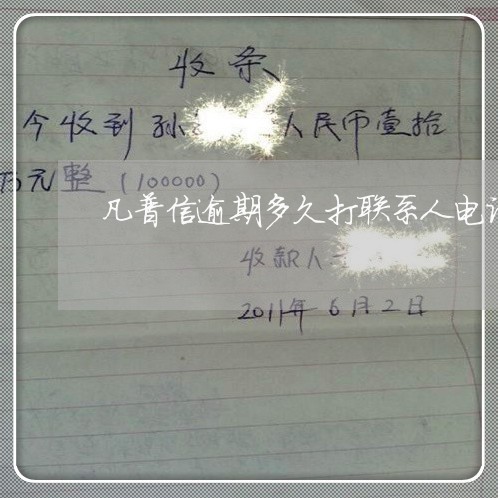 收条
今收到孙 人民币壹拾
万元整(100000)
凡普信逾期多久打联系人电
收款人
2011年6月2日